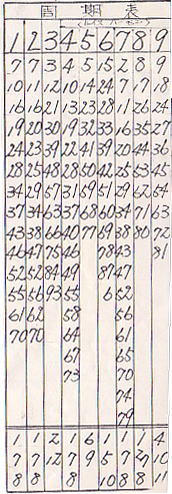 周期表
1 2 3 4 5 6 7 8 9
7 7 3 4 5 15 2 8 9
10 11 12 10 14 24 7 17 18
16 16 21 13 23 28 11 26 24
19 20 30 19 32 33 16 35 27
24 23 39 22 41 39 20 44 36
28 25 48 28 50 42 25 53 45
34 29 57 31 59 51 29 62 54
37 34 63 37 68 60 34 71 63
43 38 66 40 77 69 38 80 72
46 47 75 46 78 43 81
52 52 84 49 87 47
55 56 93 55 6 52
61 62 58 56
70 70 64 61
67 65
73 70
74
79
1 1 2 1 6 1 1 1 4
7 7 12 7 9 5 7 10
8 8 8 10 8 8 11